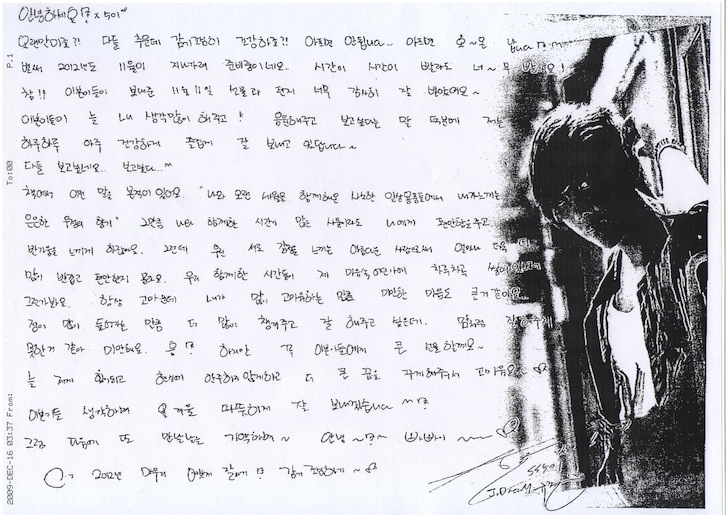 안녕하세요!? x 501
오랜만이죠?! 다들 추운데 감기조심히 건강하죠?! 아프면 안됩니다.. 아프면
벌써 2012년도 11월이 지나가려 준비중이네요. 시간이 시간이 빨라도 너~무
참!! 이쁜이들이 보내준 11월 11일 선물과 편지 너무 감사히 잘 받았어요~
이쁜이들이 늘 내 생각많이 해주고 응원해주고 보고싶다는 말 덕분에 저는
하루하루 아주 건강하게 즐겁게 잘 보내고 있답니다~
다들 보고싶네요.. 보고싶다..^^
책에서 이런 말을 본적이 있어요. "나와 오랜 세월을 함께해온 사소한 일상물품들에서 내가느끼는
은은한 우정의 향기" 그만큼 나와 함께한 시간이 많은 사물이라도 나에게 편안함을 주고
반가움을 느끼게 하잖아요. 그런데 우린 서로 감정을 느끼는 아름다운 사람으로써 얼마나 더욱 더
많이 반갑고 편안한지 몰라요. 우리 함께한 시간들이 제 마음속 어딘가에 차곡차곡
그런가봐요. 항상 고마운데 내가 많이 고마워하는 만큼 미안한 마음도 큰거 같아요..
정이 많이 들어가는 만큼 더 많이 챙겨주고 잘 해주고 싶은데.. 맘처럼
못한거 같아 미안해요. 하지만 꼭 이쁜이들에게 큰 선물 할께요~
늘 저에게 힘이되고 현실에 안주하지 않게하고 더 큰 꿈을 꾸게해주셔서 고마워요~♡
이쁜이들 생각하며 올 겨울 따뜻하게 잘 보내겠습니다 ^^!?
그럼 다음에 또 만날날을 기약하며~ 안녕~!?~ 빠빠이~~♡
2012년 마무리 이쁘게 잘하기!? 감기 조심하기~♡
SS501
2009-DEC-16 03:37 From: To:00 P.1